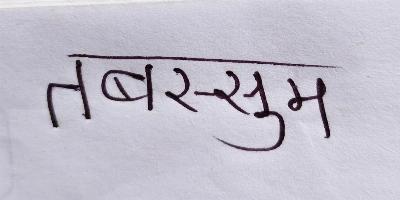 तबस्सुम